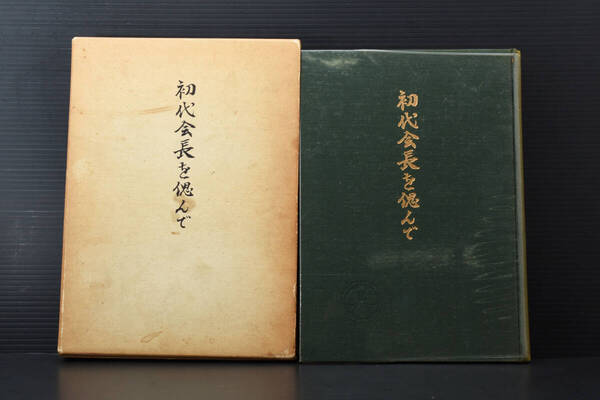 初代会長を偲んで
初代会長を偲んで